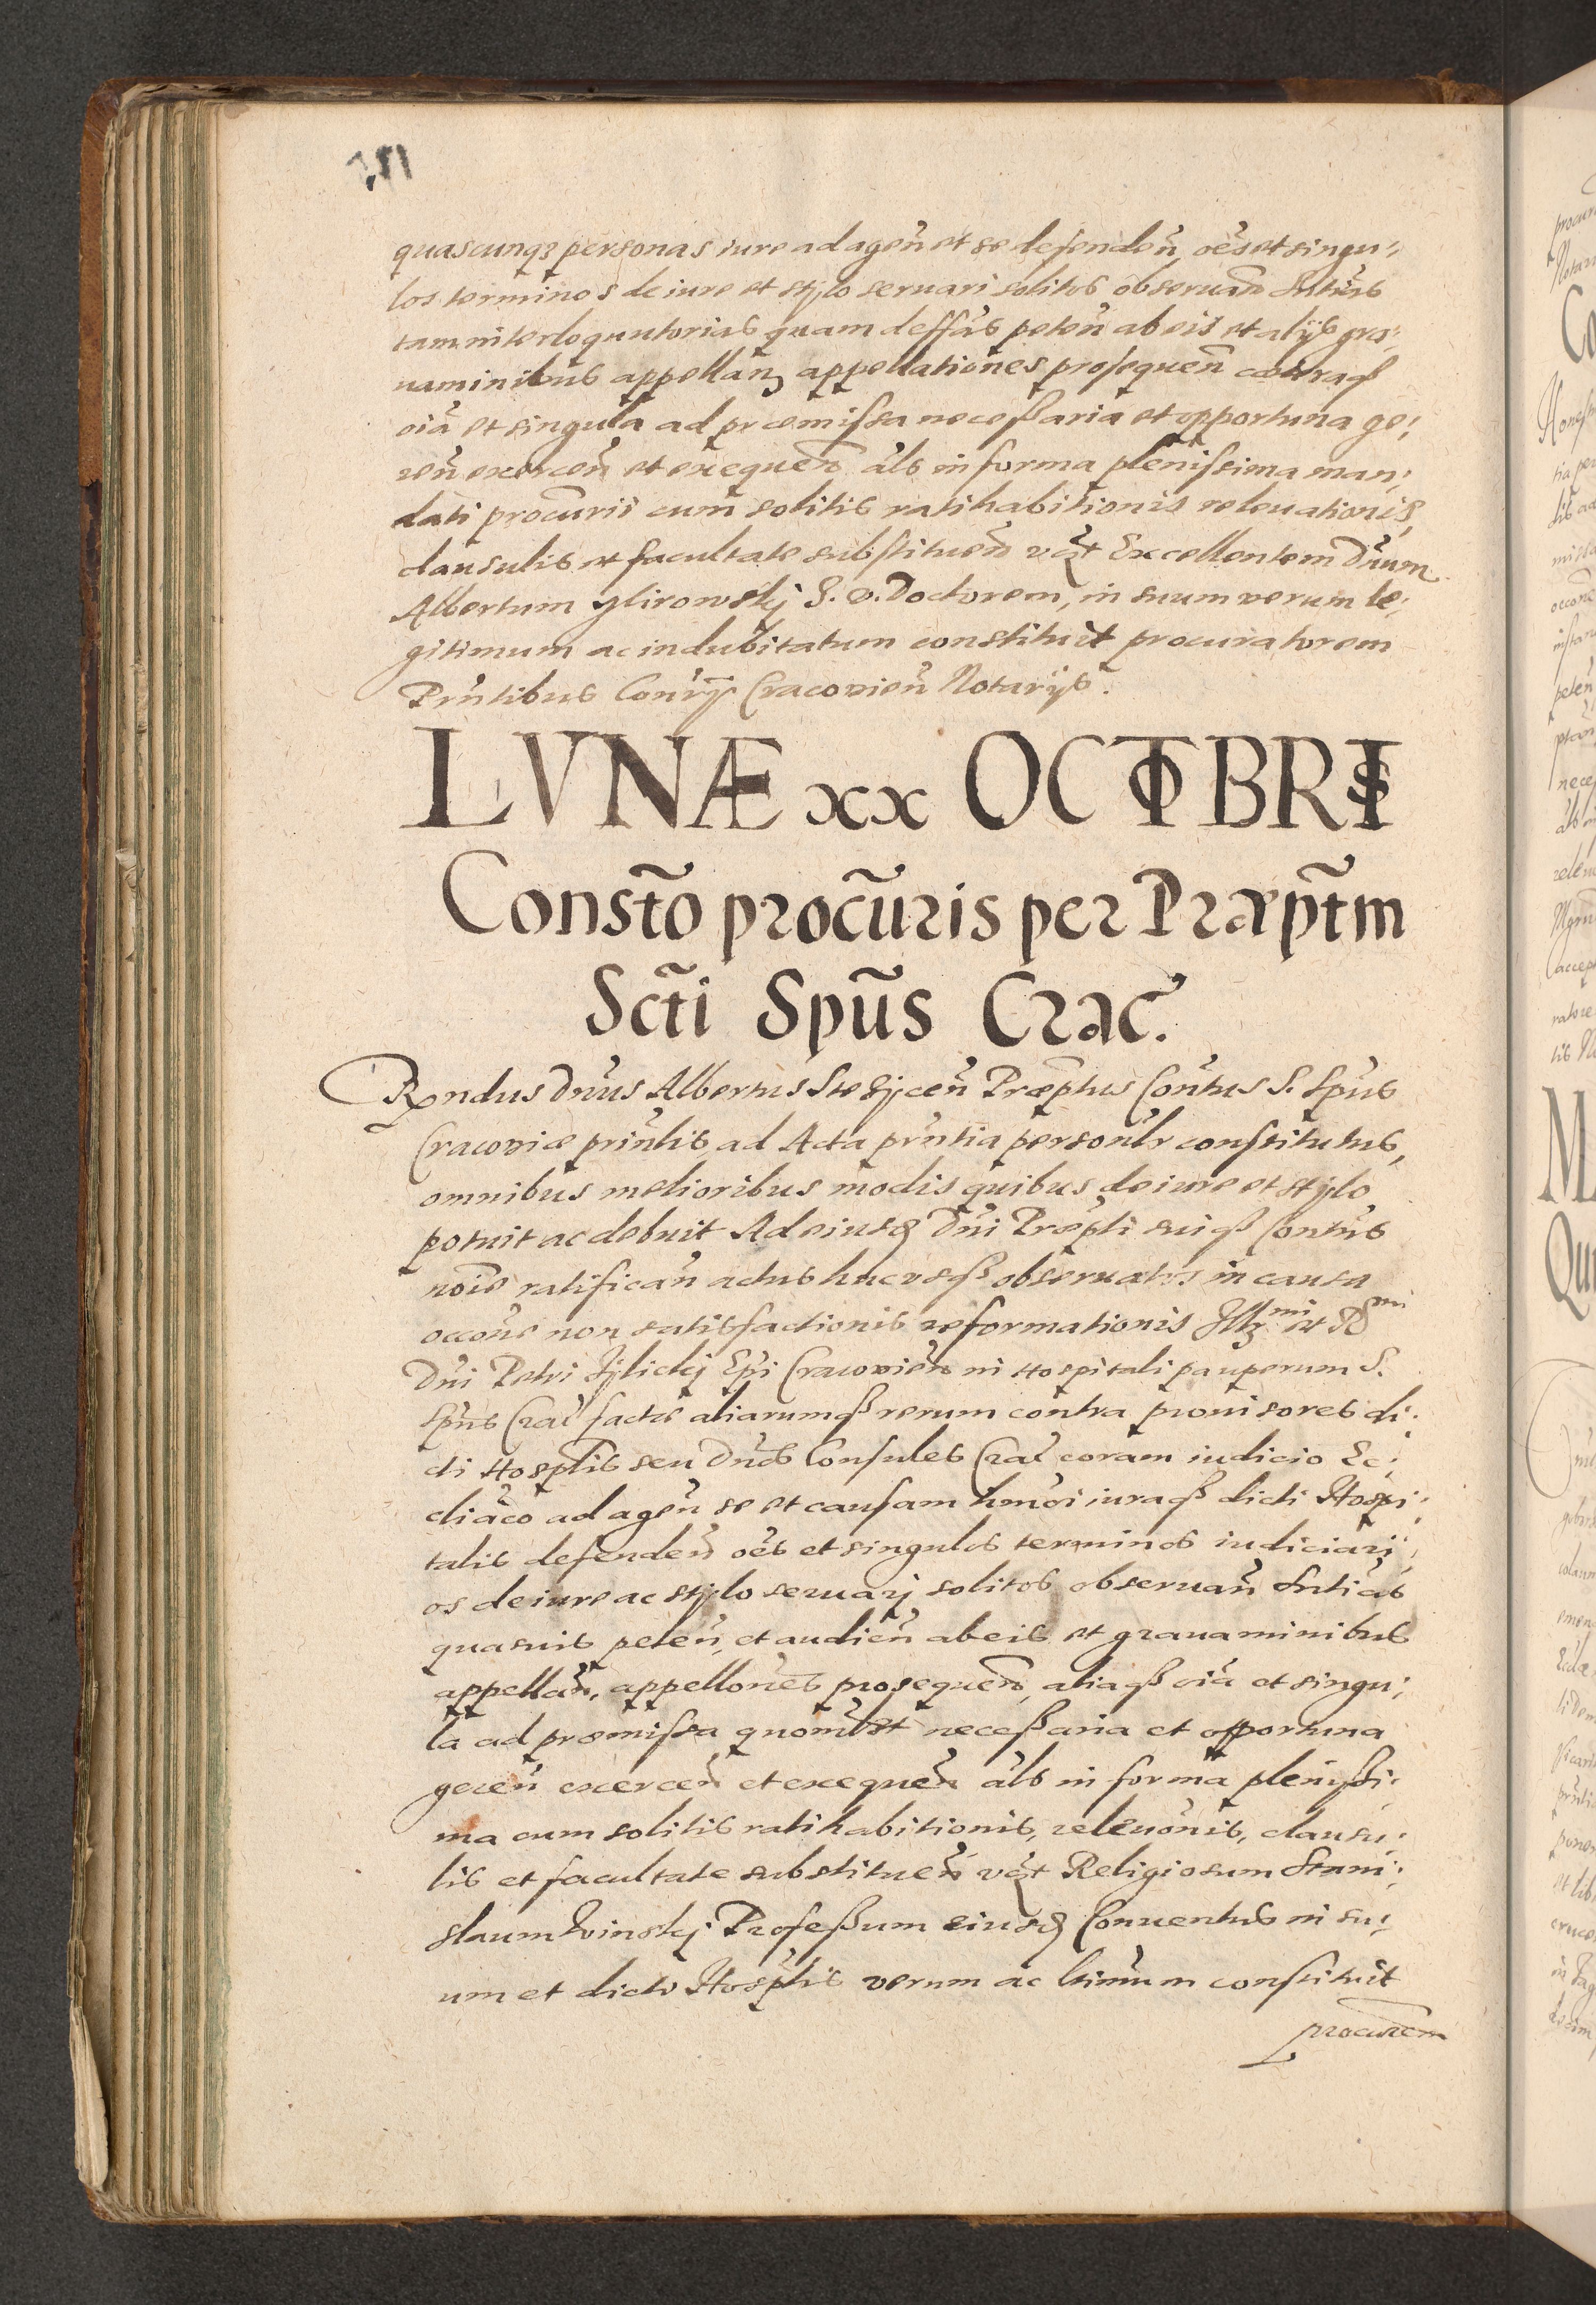 quascunqꝫ personas iure ad agen̄ et se defenden̄, oēs et singu:
los terminos de iure et stylo seruari solitos obseruan̄ Sntias
tam interloquutorias quam deff̄as peten̄ ab eis et alijs gra:
uaminibus appellan̄, appellationes prosequen̄
oīa et singula ad præmissa necessaria et opportuna ge:
ren̄ exercen̄ et exequen̄ āls in forma plenissima man:
dati procūrij cum solitis ratihabitionis releuationis,
clausulis et facultate substituen̄ vꝫt Excellentem Dn̄um
Albertum S. Doctorem, in suum verum le:
gitimum ac indubitatum constituit procuratorem
Prn̄tibus Cracouien̄ Notarijs.
LVNÆ xx OCTOBRIS
Constō procūris per Præptm̄
Scti Spūs Crac.
Rn̄dus Dn̄us Albertus Præptus Con̄tus S. Spūs
Cracouiæ prin̄lis, ad Acta prn̄tia personlr constitutus,
omnibus melioribus modis quibus de iure et stylo
potuit ac debuit Ad eiusd Dn̄i Præpti suiqꝫ Con̄tus
noīe ratifican̄ actus hucusqꝫ obseruatos in causa
occōne non satisfactionis reformationis Illmi et Rmi
Dn̄i Petri Tylickj Ep̄i Cracouien̄ in Hospitali pauperum S.
Spūs Crac̄ factæ aliarumqꝫ rerum contra prouisores di:
cti Hosplis seu Dn̄os Consules Crac̄ coram iudicio Ec:
cliāco ad agen̄ se et causam hm̄oi iuraqꝫ dicti Hospi:
talis defenden̄ oēs et singulos terminos iudiciari:
os de iure ac stylo seruarj solitos obseruan̄ Sntias
quasuis peten̄, et audien̄ ab eis et grauaminibus
appellan̄, appellōnes prosequen̄, aliaqꝫ oīa et singu:
la ad præmissa quomlbt necessaria et opportuna
geren̄ exercen̄ et exequen̄ āls in forma plenissi:
ma cum solitis ratihabitionis, releuōnis, clausu:
lis et facultate substituen̄ vꝫt Religiosum Stani:
slaum Professum eiusd Conuentus in su:
um et dicti Hosplis verum ac ltimum constituit
procūrem